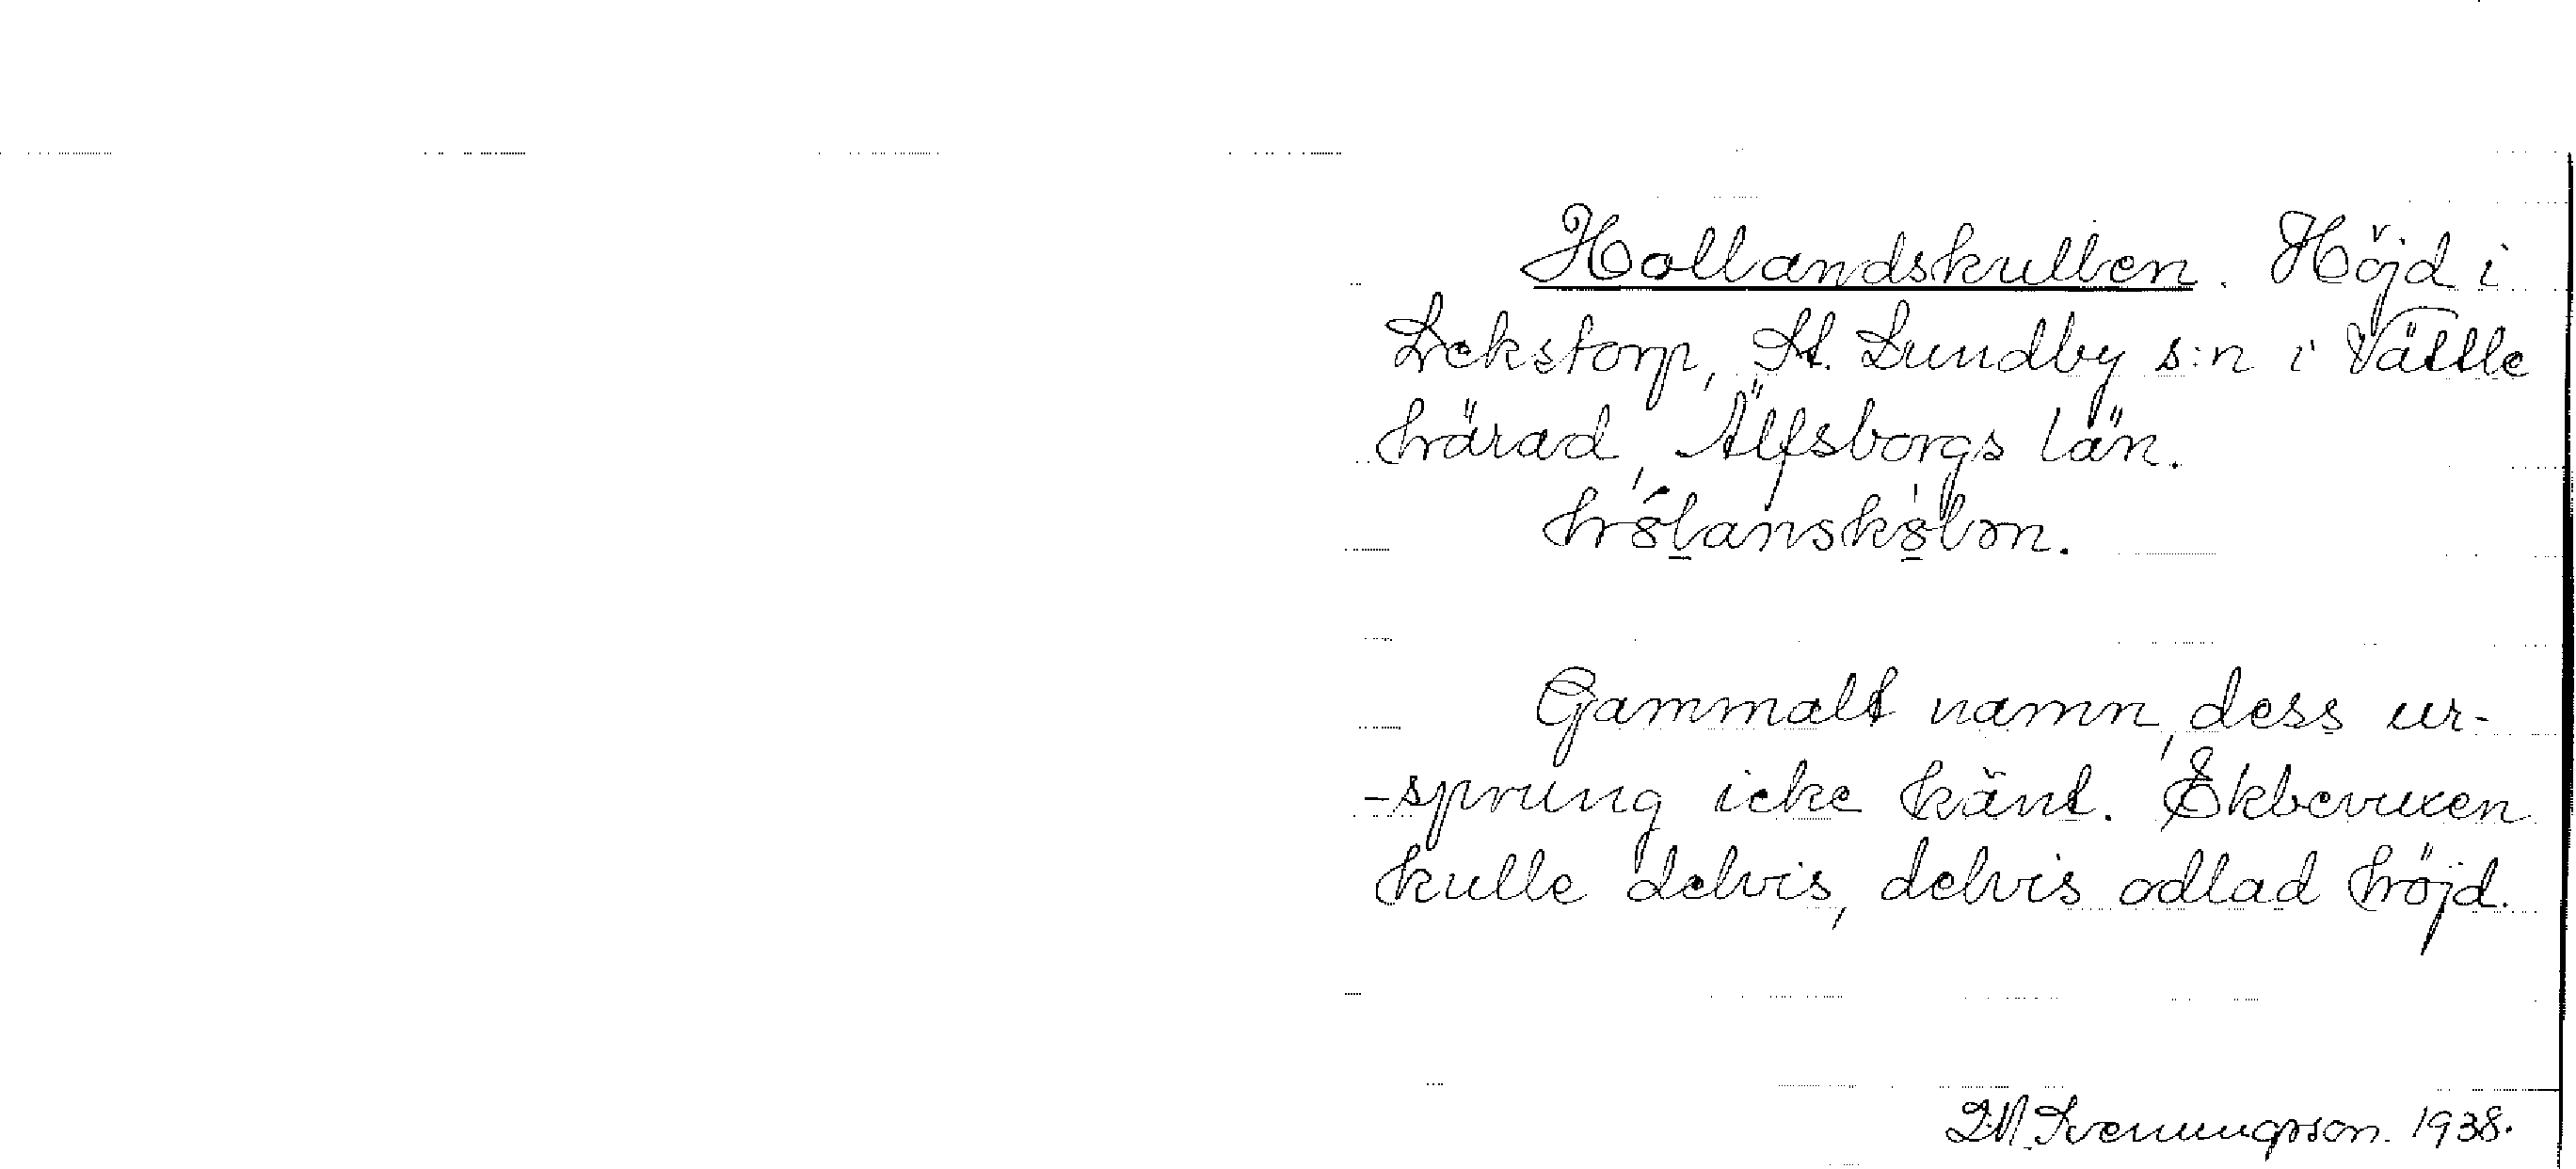 Hollandskullen. Höjd i
Lekstorp, St. Lundby s:n i Vättle
härad, Älfsborgs län.
Gammalt namn, dess ur-
-sprung icke känt. Ekbevuxen
kulle delvis, delvis odlad höjd.
1938.